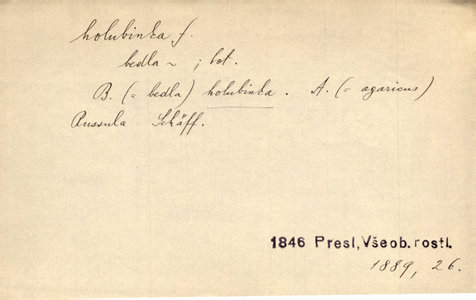 holubinka f.
bedla ~ ; bot.
B. (= bedla) holubinka. A. (= agaricus)
Russula Schäff.
1846 Presl, Všeob. rostl.
1889, 26.